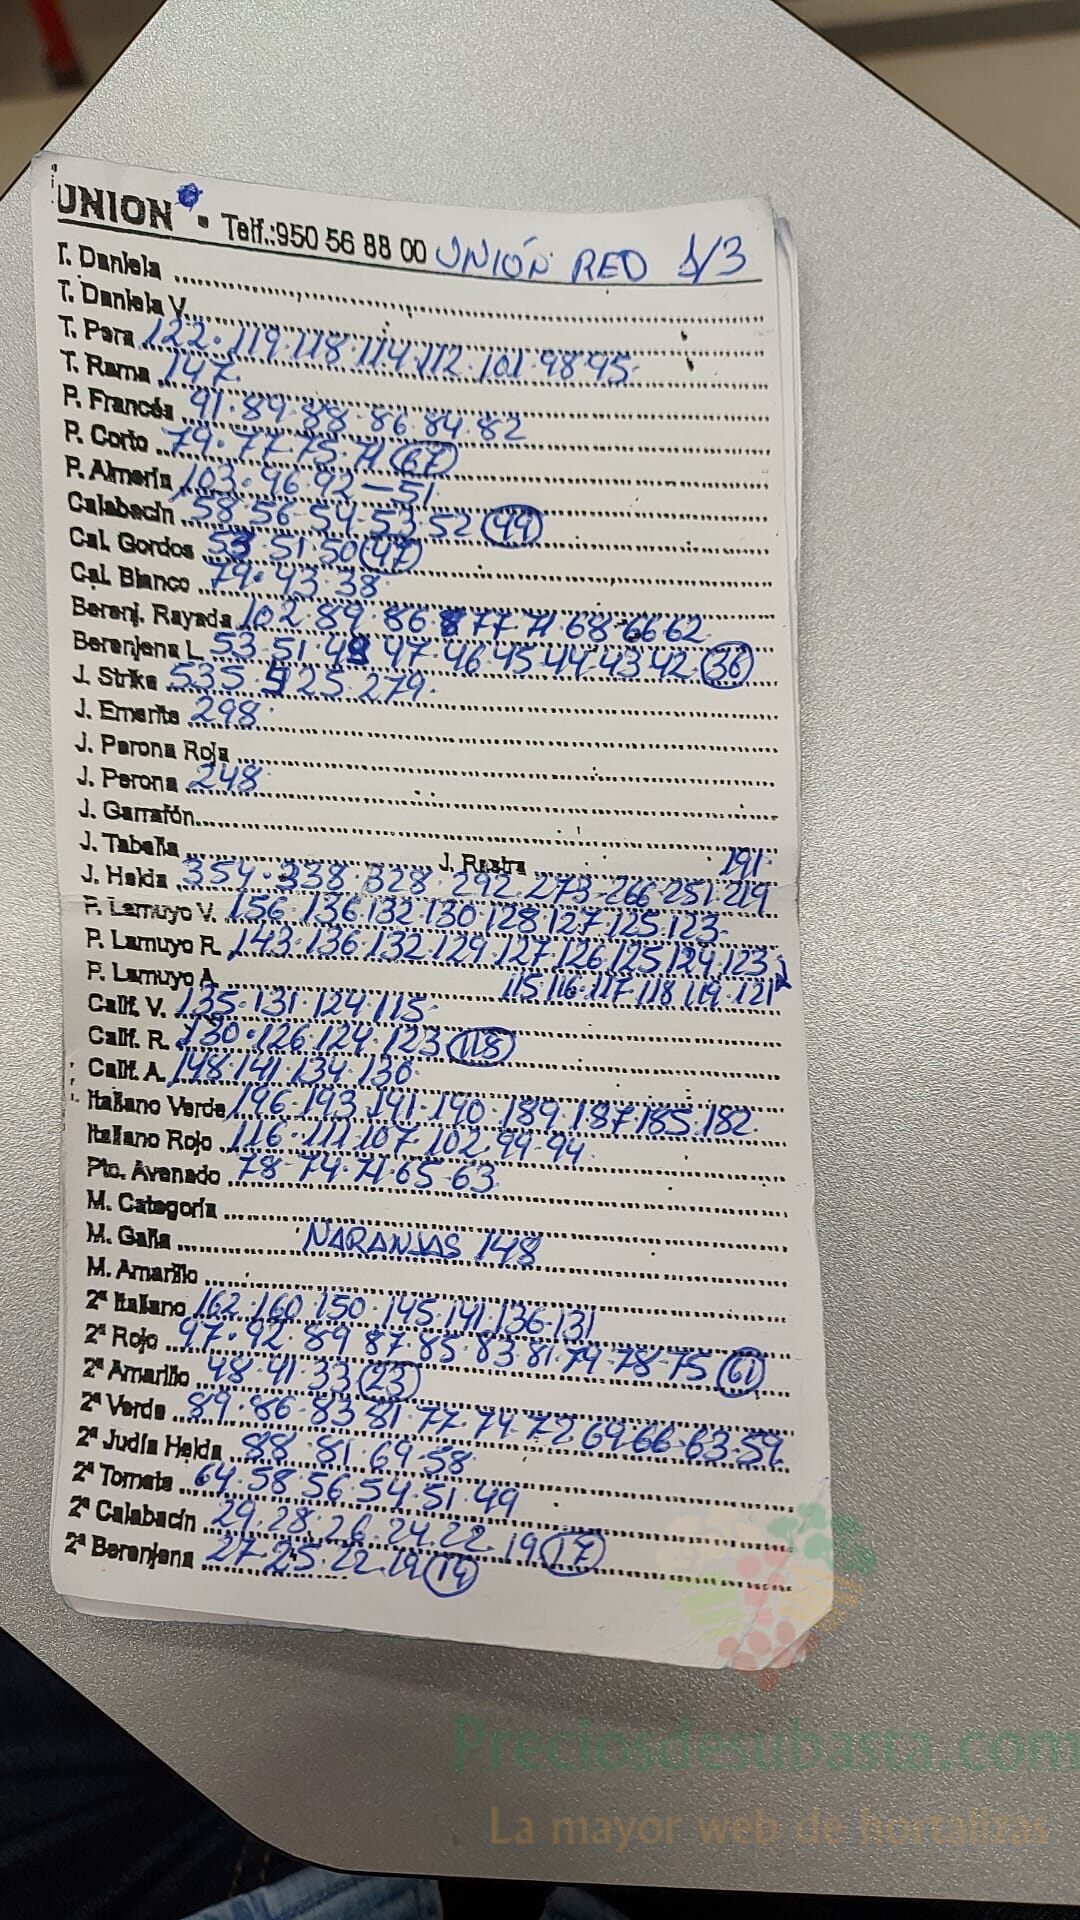 UNION. Telf.:950 56 88 00 UNIÓN RED 1/3
T. Daniela
T. Daniela V.
T. Pera 122.119.118.114.112.101.98.95.
T. Rama 147.
P. Francés 91.89.88.86.84.82
P. Corto 79.77.75.71 (67)
P. Almería 103.96.92-51.
Calabacín 58.56.54.53.52 (49)
Cal. Gordos 53.51.50 (47)
Cal. Blanco 79.43.38
Berenj. Rayada 102.89.86.77.71.68.66.62
Berenjena L. 53.51.49 47.46.45.44.43.42.(36)
J. Strike 535.525.279.
J. Emerite 298.
J. Perona Roja
J. Perona 248
J. Garrafón
J. Tabella J. Rastra 191
J. Helda 354.338.328.292.273-266-251.219
P. Lamuyo V. 156.136.132.130.128.127.125.123-
P. Lamuyo R. 143.136.132.129.127.126.125.124.123
P. Lamuyo A. 115.116.117.118.119.121
Calif. V. 135.131.124.115-
Calif. R. 130.126.124.123 (118)
Calif. A. 148.141.134.130
Italiano Verde 196.193.191.190.189.187.185.182
Italiano Rojo 116.111.107.102.99.94.
Pto. Avenado 78-74.71.65-63
M. Categoría
M. Galia NARANJAS 148
M. Amarillo
2ª Italiano 162.160.150.145.141.136.131
2ª Rojo 97.92.89 87.85.83.81.79.78.75 (61)
2ª Amarillo 48.41.33 (23)
2ª Verde 89.86.83 81.77.74.72 69.66.63.59
2ª Judía Helda 88.81.69.58
2ª Tomate 64.58.56.54.51.49
2ª Calabacín 29.28.26.24.22.19 (17)
2ª Berenjena 27.25.22.19 (14)
Preciosdesubasta.com
La mayor web de hortalizas